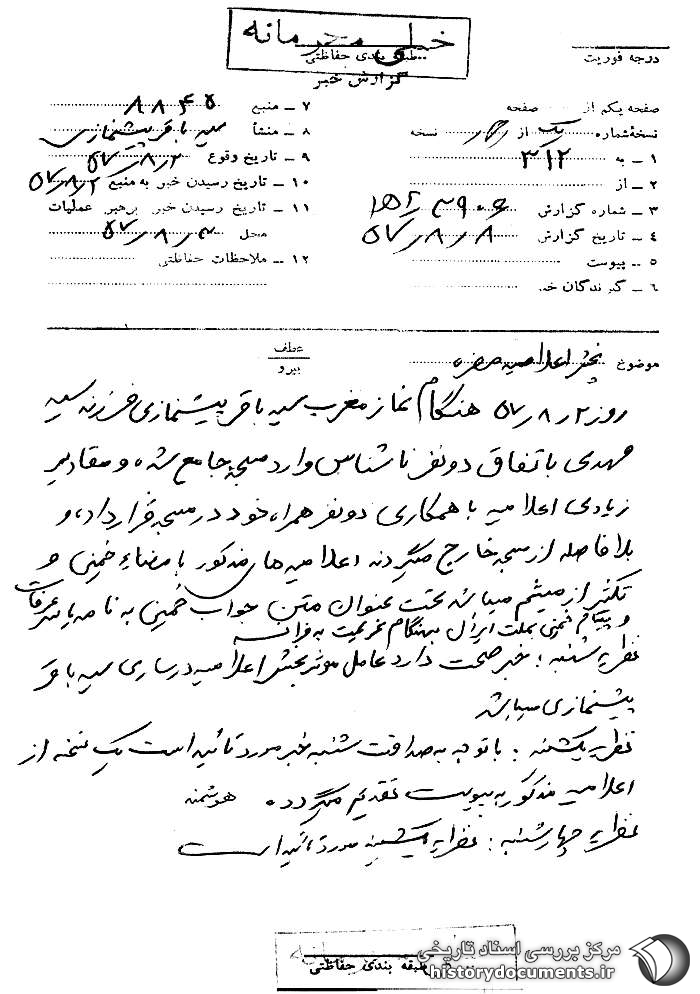 خیلی محرمانه
طبقه بندی حفاظتی
گزارش خبر
درجه فوریت
صفحه یکم از صفحه
نسخه شماره یک از نسخه
۱ ـ به ۳۱۲
۲ ـ از
۳ ـ شماره گزارش
۴ ـ تاریخ گزارش ۵۷٫۸٫۸
۵ ـ پیوست
۶ ـ گیرندگان خبر
۷ ـ منبع ۸۸۴۵
۸ ـ منشأ سید باقر پیشنمازی
۹ ـ تاریخ وقوع ۵۷٫۸٫۲
۱۰ ـ تاریخ رسیدن خبر به منبع ۵۷٫۸٫۲
۱۱ ـ تاریخ رسیدن خبر برهبر عملیات
محل ۵۷٫۸٫۳
۱۲ ـ ملاحظات حفاظتی
موضوع پخش اعلامیه مضره
عطف
پیرو
روز ۵۷٫۸٫۲ هنگام نماز مغرب سید باقر پیشنمازی فرزند سید
مهدی باتفاق دو نفر ناشناس وارد مسجد جامع شده و مقادیر
زیادی اعلامیه با همکاری دو نفر همراه خود در مسجد قرار داده و
بلافاصله از مسجد خارج میگردند اعلامیه های مذکور با مضاء خمینی و
تکثیر از میثم میباشد تحت عنوان متن جواب خمینی به نامه یاسر عرفات
و پیام خمینی بملت ایران بهنگام عزیمت به فرانسه
نظریه شنبه : خبر صحت دارد عامل موثر پخش اعلامیه در ساری سید باقر
پیشنمازی میباشد
نظریه یکشنبه : با توجه به صداقت شنبه خبر مورد تائید است یک نسخه از
اعلامیه مذکور به پیوست تقدیم میگردد. هوشمند
نظریه چهارشنبه : نظریه یکشنبه مورد تائید است
طبقه بندی حفاظتی
مرکز بررسی اسناد تاریخی
historydocuments.ir